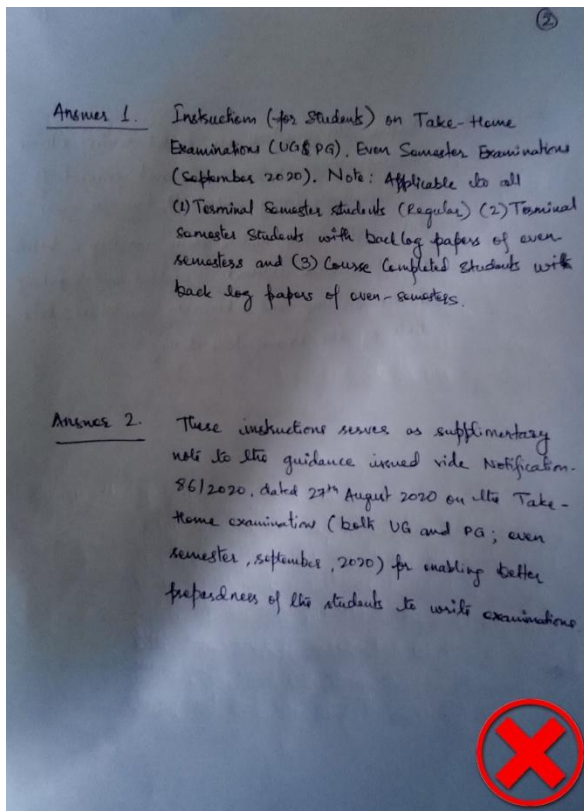 2
Answer 1. Instructions (for Students) on Take-Home
Examinations (UG & PG), Even Semester Examinations
(September 2020). Note: Applicable to all
(1) Terminal Semester students (Regular) (2) Terminal
Semester Students with backlog papers of even-
semesters and (3) Course Completed Students with
back log papers of even-semesters.
Answer 2. These instructions serves as supplimentary
note to the guidance issued vide Notification-
86/2020, dated 27th August 2020 on the Take-
Home examination (both UG and PG; even
semester, september, 2020) for enabling better
prepardness of the students to write examinations